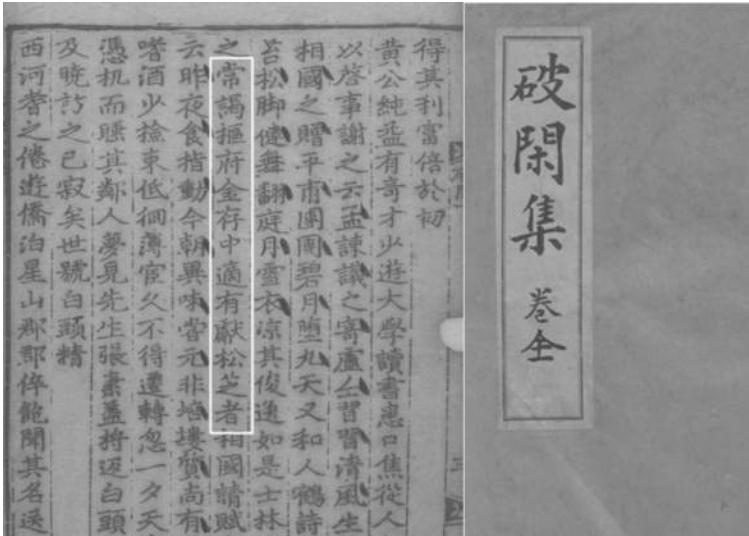 得其利當倍於初
黃公純益有奇才少遊大學讀書患口焦從人
以啓事謝之云孟諫議之寄盧仝習習淸風生
相國之贈平甫團團碧月墮九天又和人鶴詩
苔松脚健舞翻庭月雪衣凉其俊逸如是士林
之常謁樞府金存中適有獻松芝者相國請賦
云昨夜食指動今朝異味嘗元非培塿質尙有
嗜酒少檢束低徊薄宦久不得遷轉忽一夕天
憑机而睡其鄰人夢見先生張素蓋將返白頭
及曉訪之已寂矣世號白頭精
西河耆之倦遊僑泊星山郡郡倅飽聞其名送
破閑集 卷全